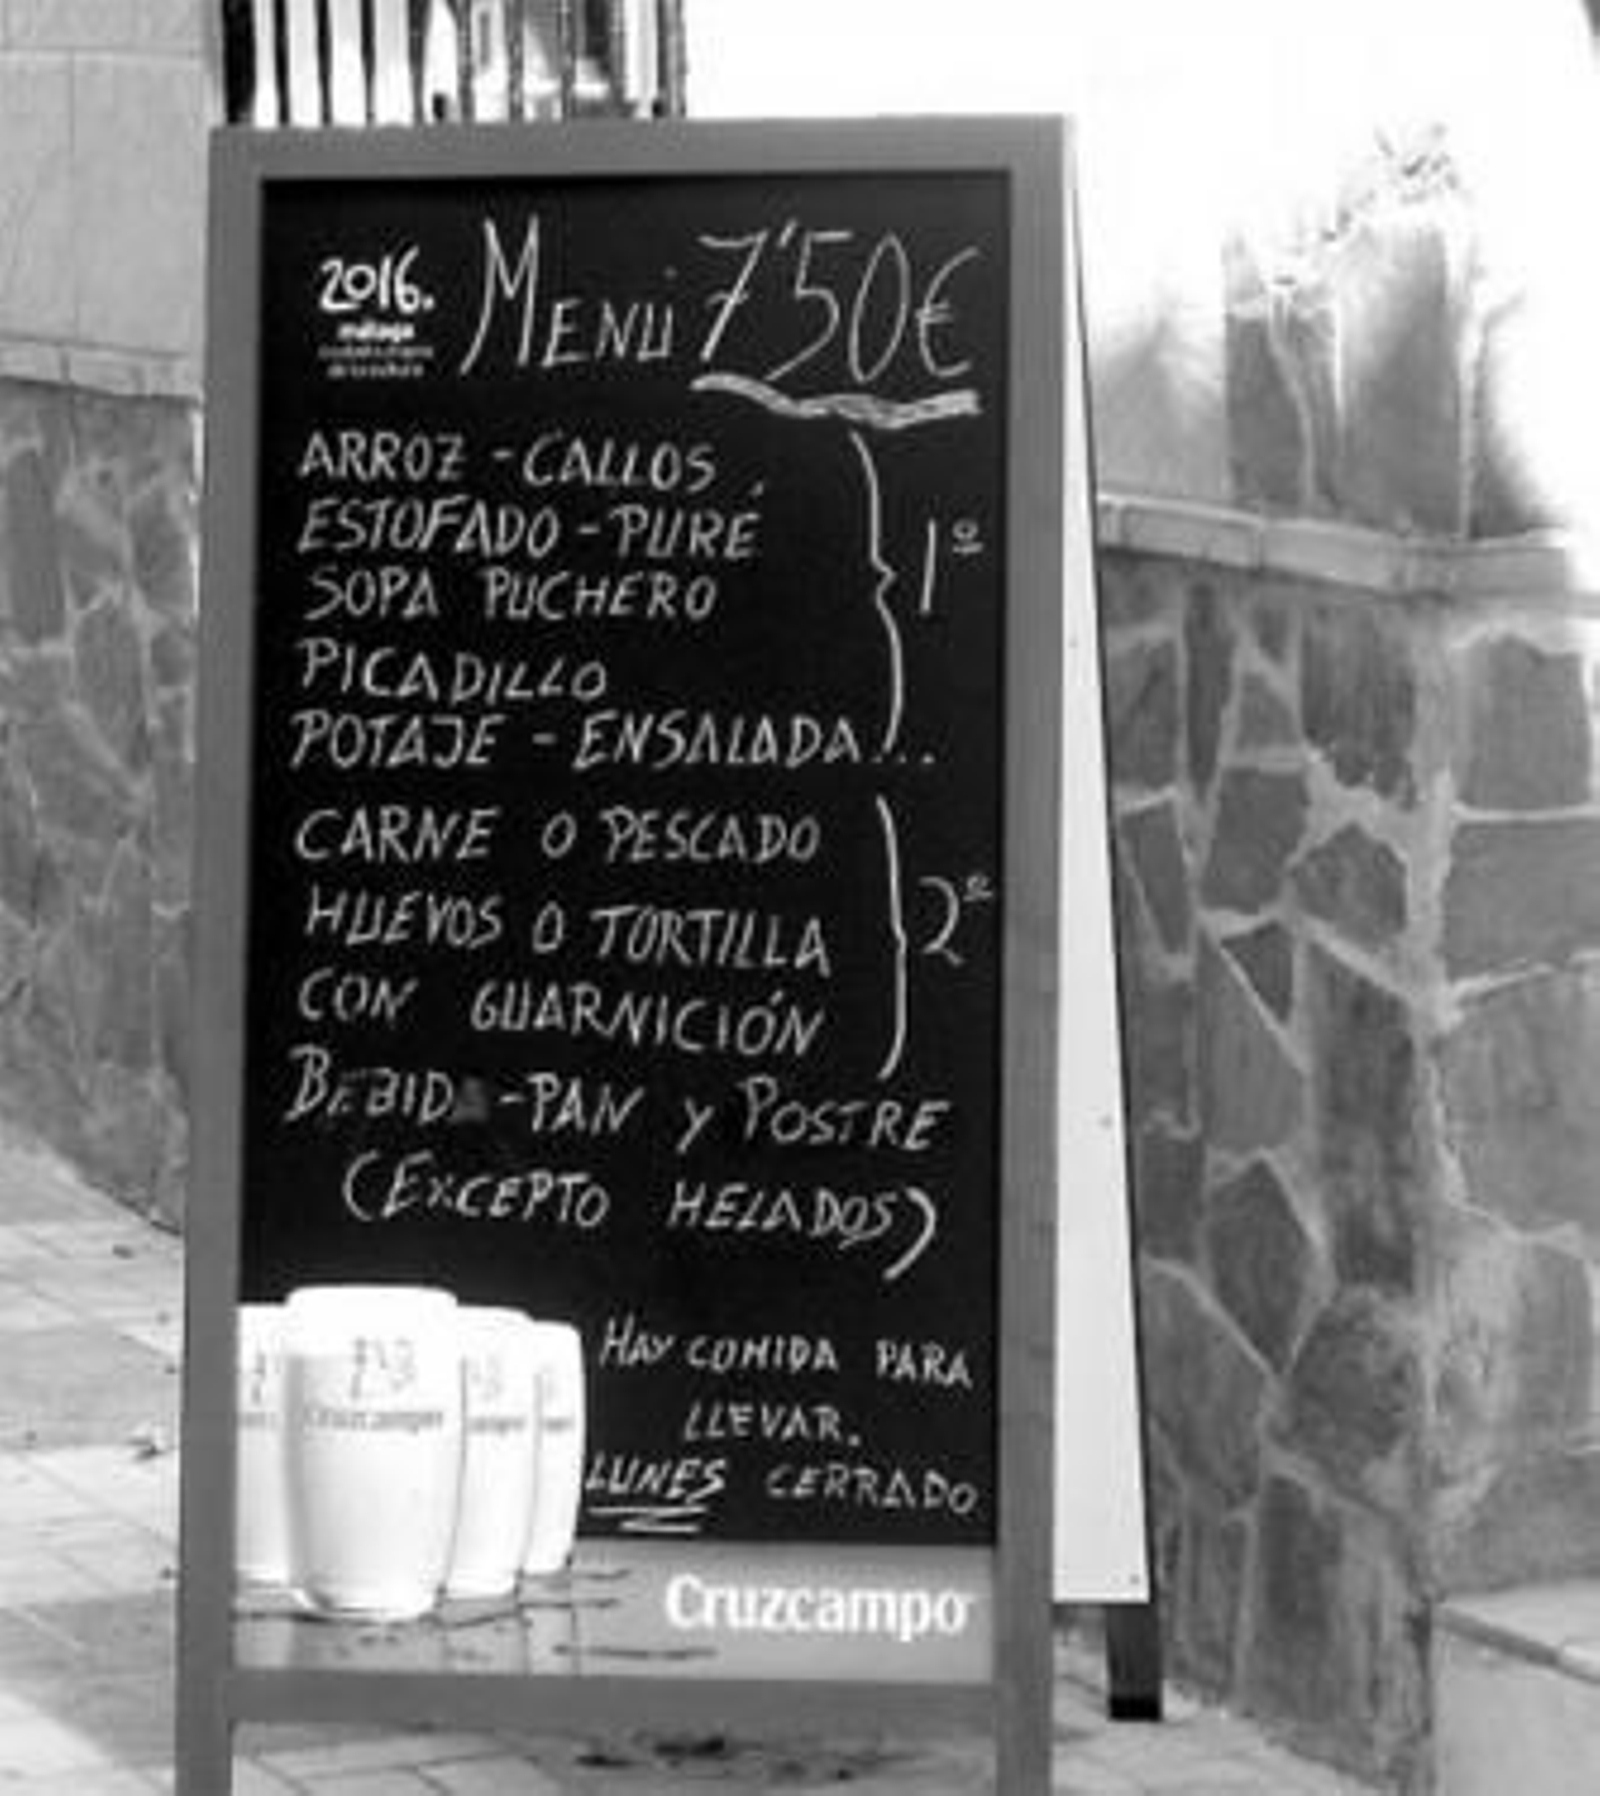 2016.
málaga
MENÚ 7'50€
ARROZ - CALLOS
ESTOFADO - PURÉ
SOPA PUCHERO
PICADILLO
POTAJE - ENSALADA...
1º
CARNE O PESCADO
HUEVOS O TORTILLA
CON GUARNICIÓN
2º
BEBIDA - PAN y POSTRE
(EXCEPTO HELADOS)
HAY COMIDA PARA
LLEVAR.
LUNES CERRADO
Cruzcampo
Cruzcampo